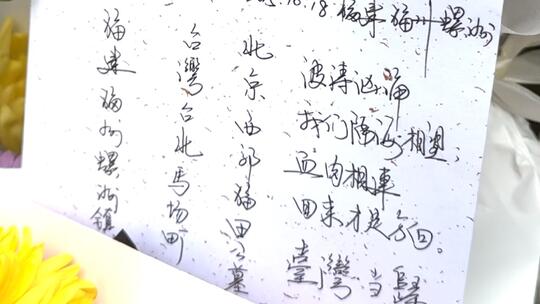 .10.18 福建福州螺洲
波涛汹涌
我们隔海相望,
血肉相連
回来才是方向。
臺灣当歸
北京西郊福田公墓
台灣台北馬场町
福建福州螺洲鎮